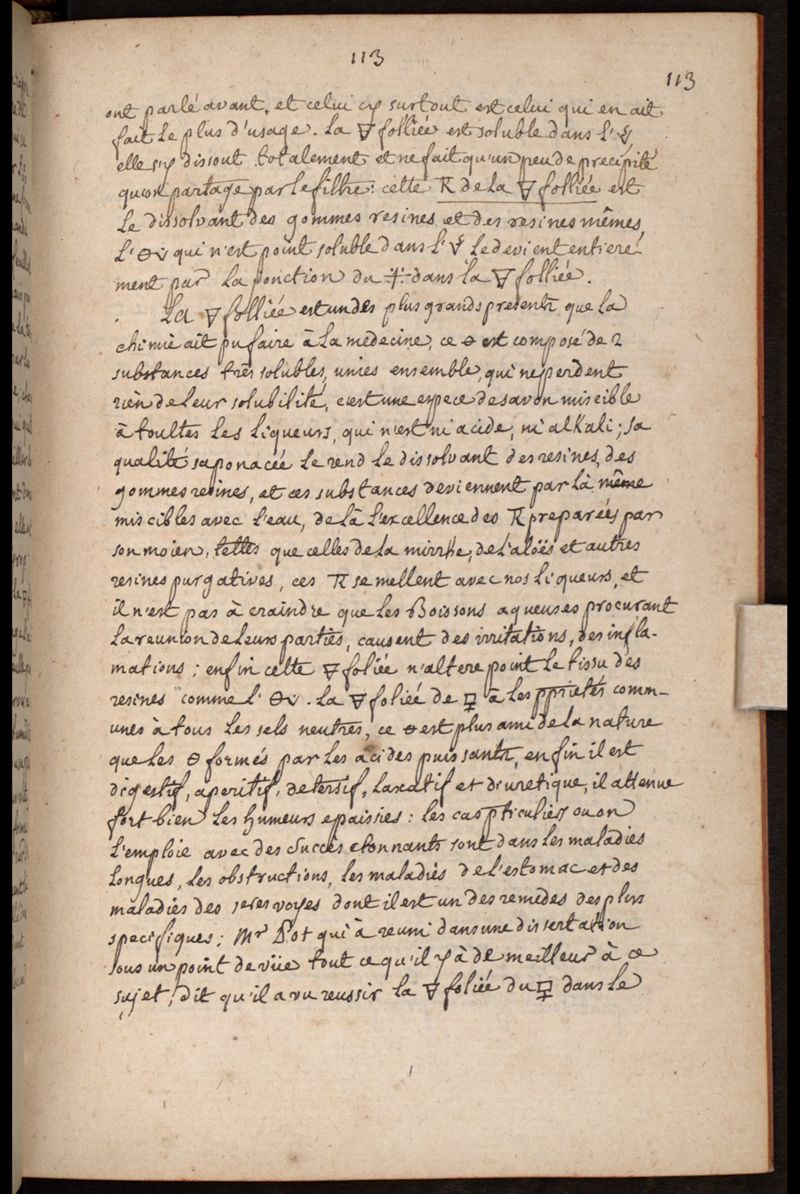 113
113
ont parlé avant, et celui cy surtout est celui qui en ait
fait le plus d'usage. La 🜃 folliée est soluble dans l'
elle s'y dissout totalement et ne fait qu'un peu de precipité
qu'on partage par le filtre: cette R de la 🜃 folliée est
Le dissolvant des gommes resines et des resines mêmes,
L' qui n'est point soluble dans l' Le devient entiere-
ment par la jonction du dans la 🜃 folliée.
La 🜃 folliée est un des plus grands presents que la
chimie ait pu faire à la médecine, ce 🜔 est composé de 2
substances très solubles, unies ensemble, qui ne perdent
rien de leur solubilité, c'est une espece de savon miscible
à touttes les liqueurs, qui n'est ni acide, ni alkali; sa
qualité saponacée le rend le dissolvant des resines, des
gommes resines, et ces substances deviennent par là même
miscibles avec l'eau, de là l'excellence des R preparées par
son moien, telles que celles de la mirrhe, de l'aloës et autres
resines purgatives, ces R se mellent avec nos liqueurs, et
il n'est pas à craindre que les Boissons aqueuses procurant
la reunion de leurs parties, causent des irritations, des infla-
mations; enfin cette 🜃 foliée n'altere point le tissu des
resines comme l' . La 🜃 foliée de 🜿 à les pprietés comm-
unes à tous les sels neutres, ce 🜔 est plus ami de la nature
que les 🜔 formés par les acides puissants, enfin il est
digestif, aperitif, detersif, laxatif et diuretique, il attenue
fort bien les humeurs epaissies: les cas pticuliers ou on
l'emploie avec des succès etonnants sont dans les maladies
longues, les obstructions, les maladies de l'estomac et des
maladies des 1eres voyes dont il est un des remèdes des plus
specifiques; Mr Pot qui à reuni dans une dissertation
sous un point de vüe tout ce qu'il y à de meilleur à ce
sujet, dit qu'il a vu reussir la 🜃 foliée du 🜿 dans le